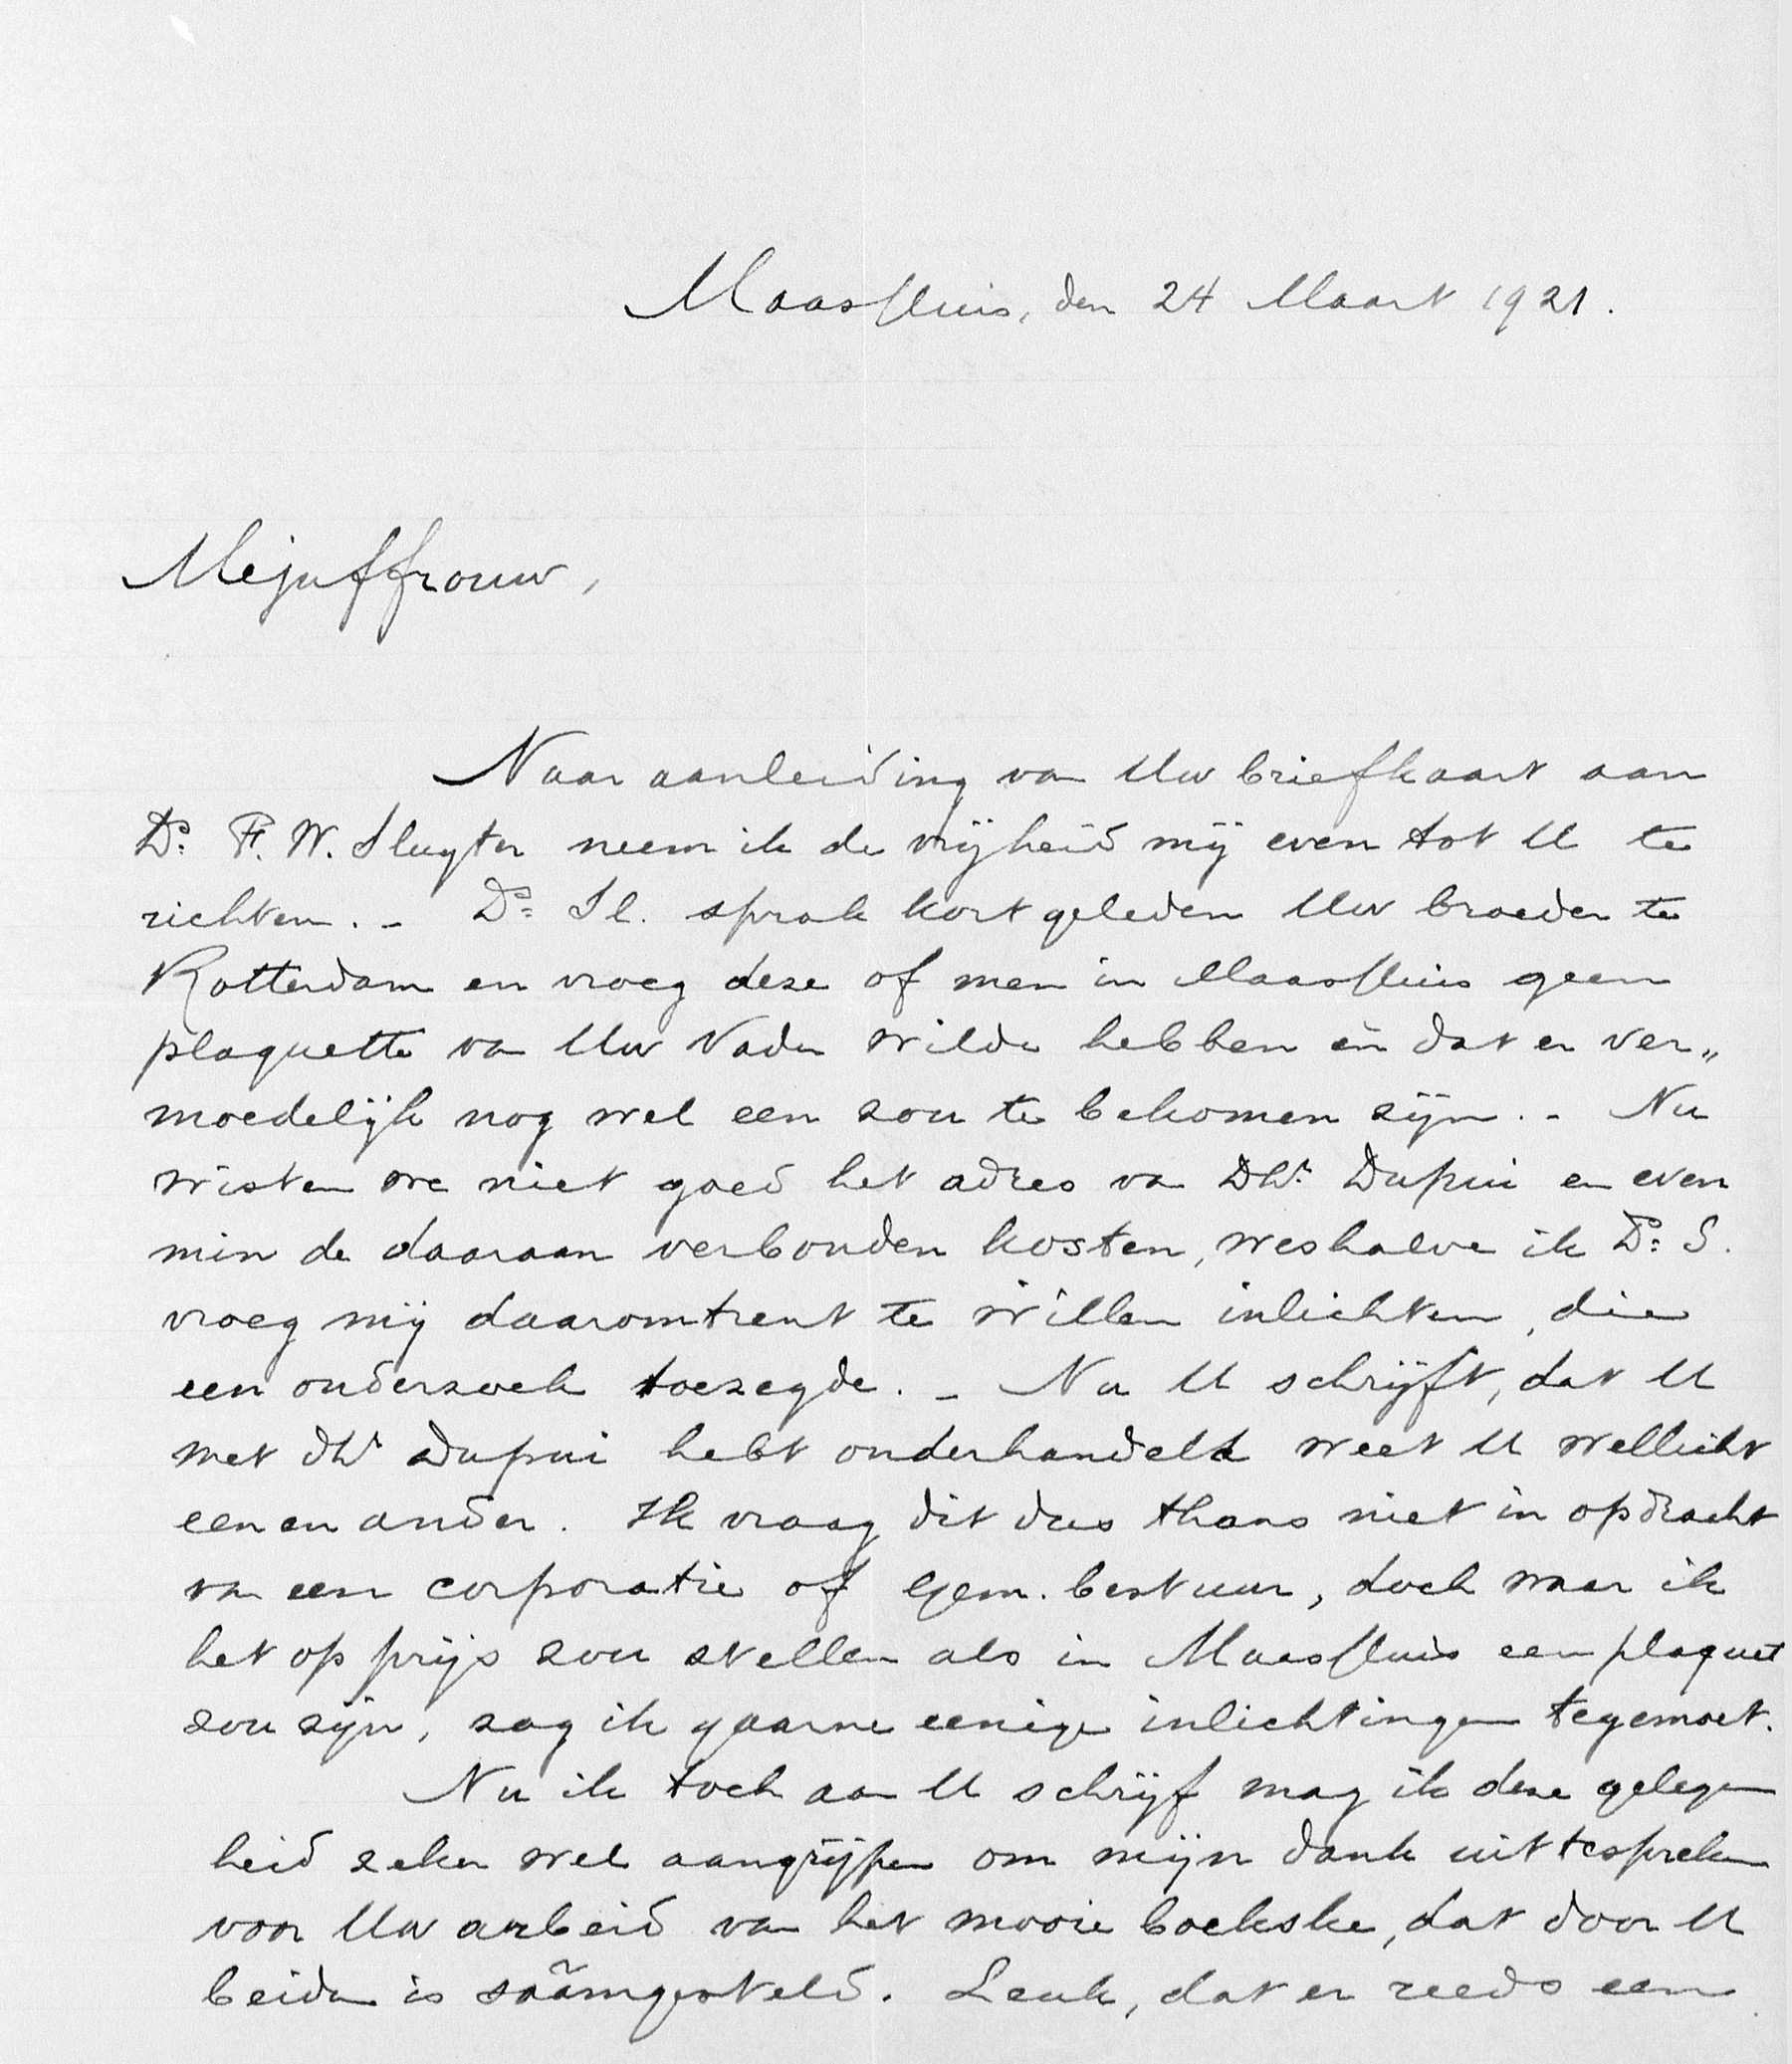 Maassluis, den 24 Maart 1921.
Mejuffrouw,
Naar aanleiding van Uw briefkaart aan
Ds. F. W. Sluyter neem ik de vrijheid mij even tot U te
richten. – Ds. Sl. sprak kort geleden Uw broeder te
Rotterdam en vroeg deze of men in Maassluis geen
plaquette van Uw Vader wilde hebben èn dat er ver„
moedelijk nog wel een zou te bekomen zijn. – Nu
wisten we niet goed het adres van DHr. Dupui en even
min de daaraan verbonden kosten, weshalve ik Ds. S.
vroeg mij daaromtrent te willen inlichten, die
een onderzoek toezegde. – Nu U schrijft, dat U
met dHr Dupui hebt onderhandeld weet U wellicht
een en ander. Ik vraag dit dus thans niet in opdracht
van een corporatie of gem. bestuur, doch waar ik
het op prijs zou stellen als in Maassluis een plaquet
zou zijn, zag ik gaarne eenige inlichtingen tegemoet.
Nu ik toch aan U schrijf mag ik deze gelegen
heid zeker wel aangrijpen om mijn dank uittespreken
voor Uw arbeid van het mooie boekske, dat door U
beiden is saâmgesteld. Leuk, dat er reeds een